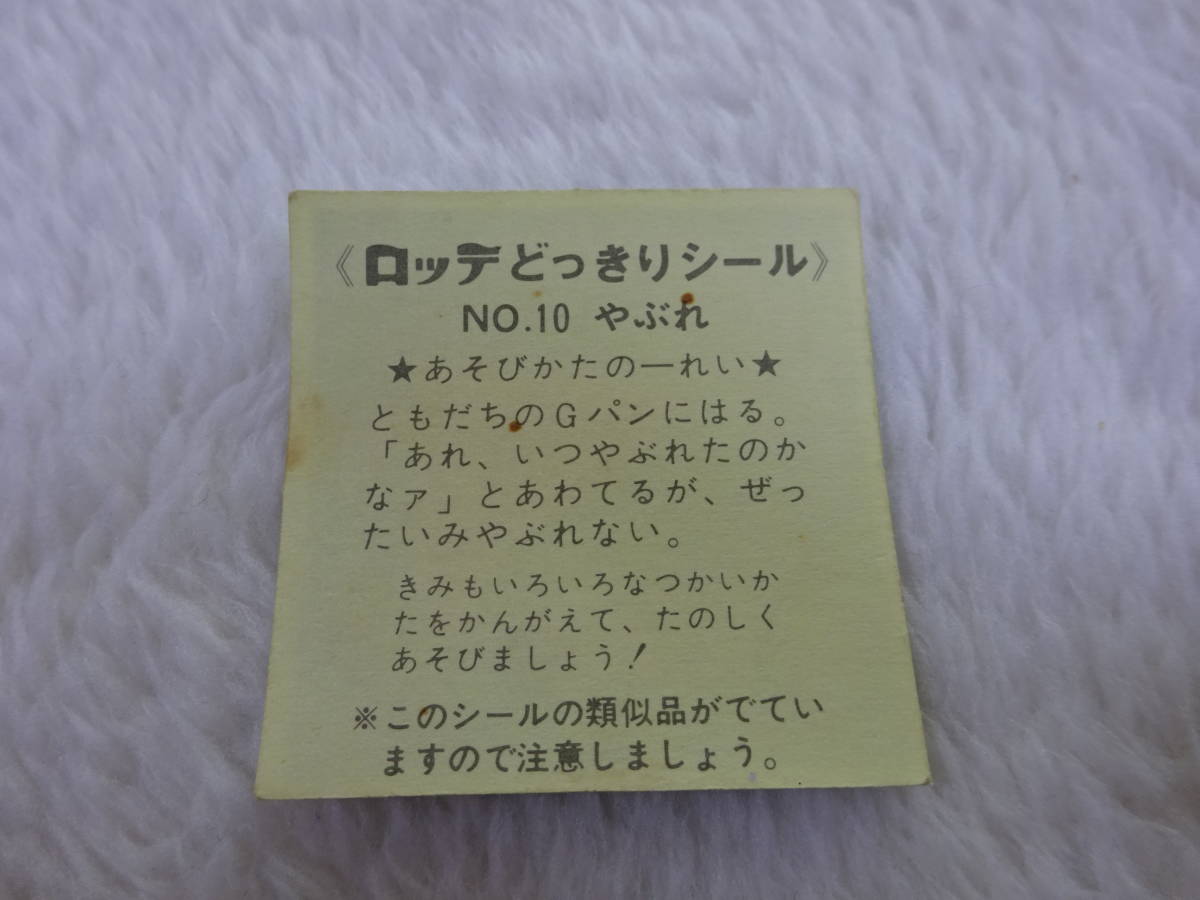 《ロッテどっきりシール》
NO.10 やぶれ
★あそびかたの一れい★
ともだちのGパンにはる。
「あれ、いつやぶれたのか
なァ」とあわてるが、ぜっ
たいみやぶれない。
きみもいろいろなつかいか
たをかんがえて、たのしく
あそびましょう!
※このシールの類似品がでてい
ますので注意しましょう。